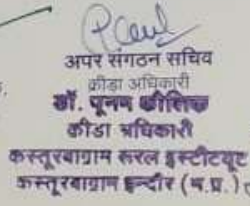 अपर संगठन सचिव
क्रीडा अधिकारी
डॉ. पूनम कौशिक
क्रीडा अधिकारी
कस्तूरबाग्राम रूरल इंस्टीटयूट
कस्तूरबाग्राम इन्दौर (म.प्र.)